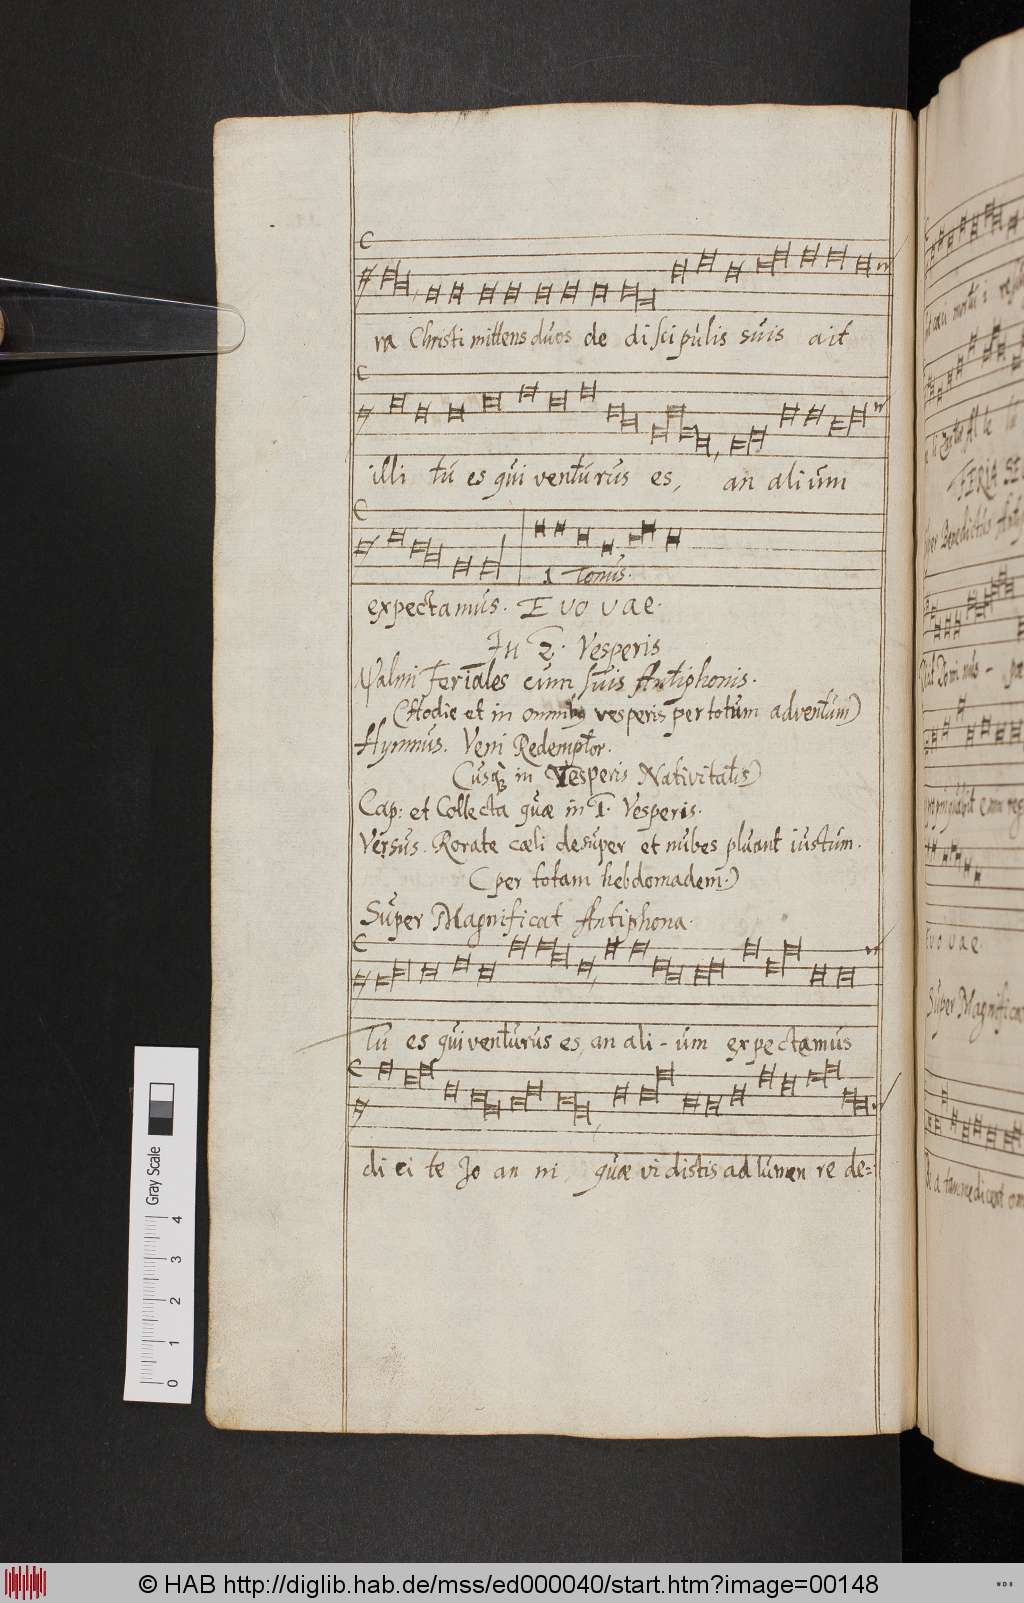 ra Christi mittens duos de discipulis suis ait
illi tu es qui venturus es, an alium
1 Tonus.
expectamus. E vo vae.
In 2. Vesperis
Psalmi Feriales cum suis Antiphonis.
(Hodie et in omnibus vesperis per totum adventum)
Hymnus. Veni Redemptor.
(usque in Vesperis Nativitatis)
Cap: et Collecta quæ in 1. Vesperis.
Versus. Rorate cæli desuper et nubes pluant iustum.
(per totam hebdomadem.)
Super Magnificat Antiphona.
Tu es qui venturus es, an ali-um expectamus
di ci te Jo an ni, quæ vi distis ad lumen re de=
FERIA SE
per Benedictus Ant
Evovae
Super Magnificat
Gray Scale
0 1 2 3 4
© HAB http://diglib.hab.de/mss/ed000040/start.htm?image=00148